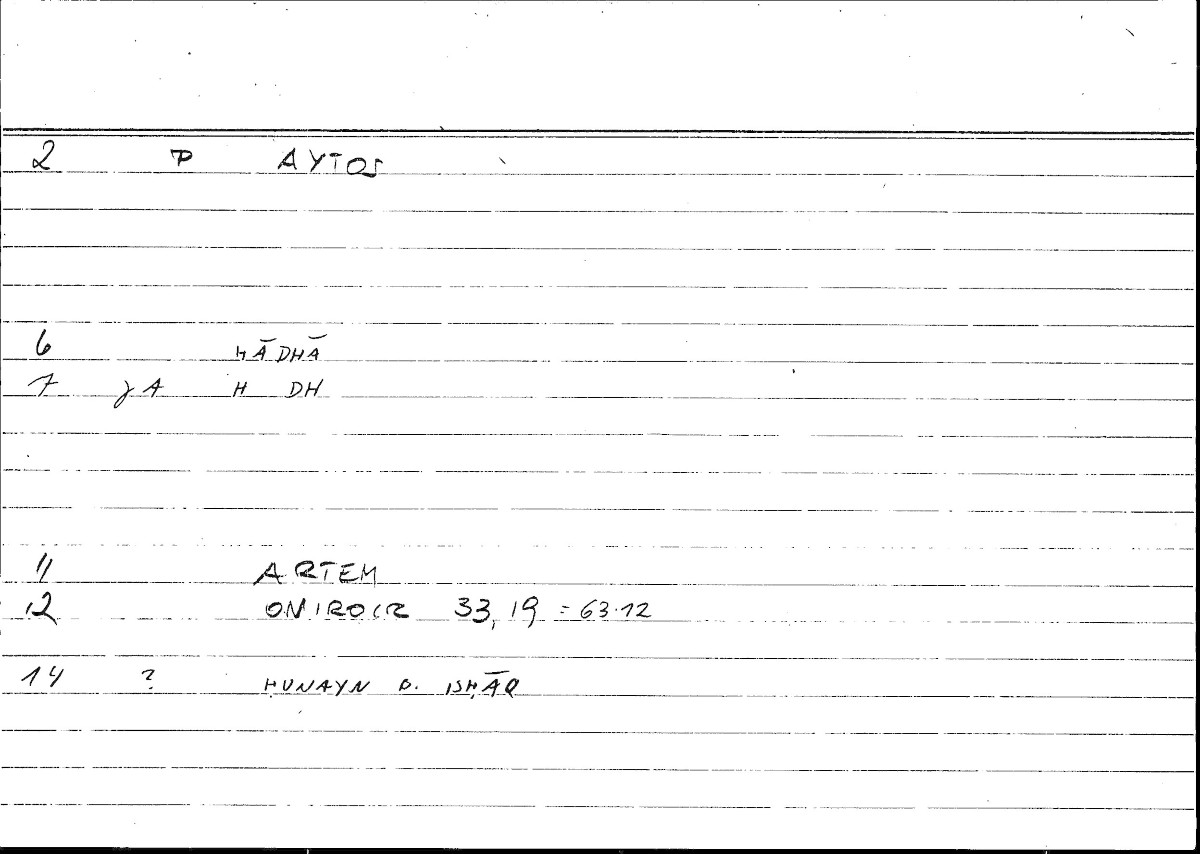 2 P AYTOS
6 HĀDHĀ
7 JA H DH
11 ARTEM
12 ONIROCR 33,19 = 63.12
14 ? ḤUNAYN B. ISḤĀQ